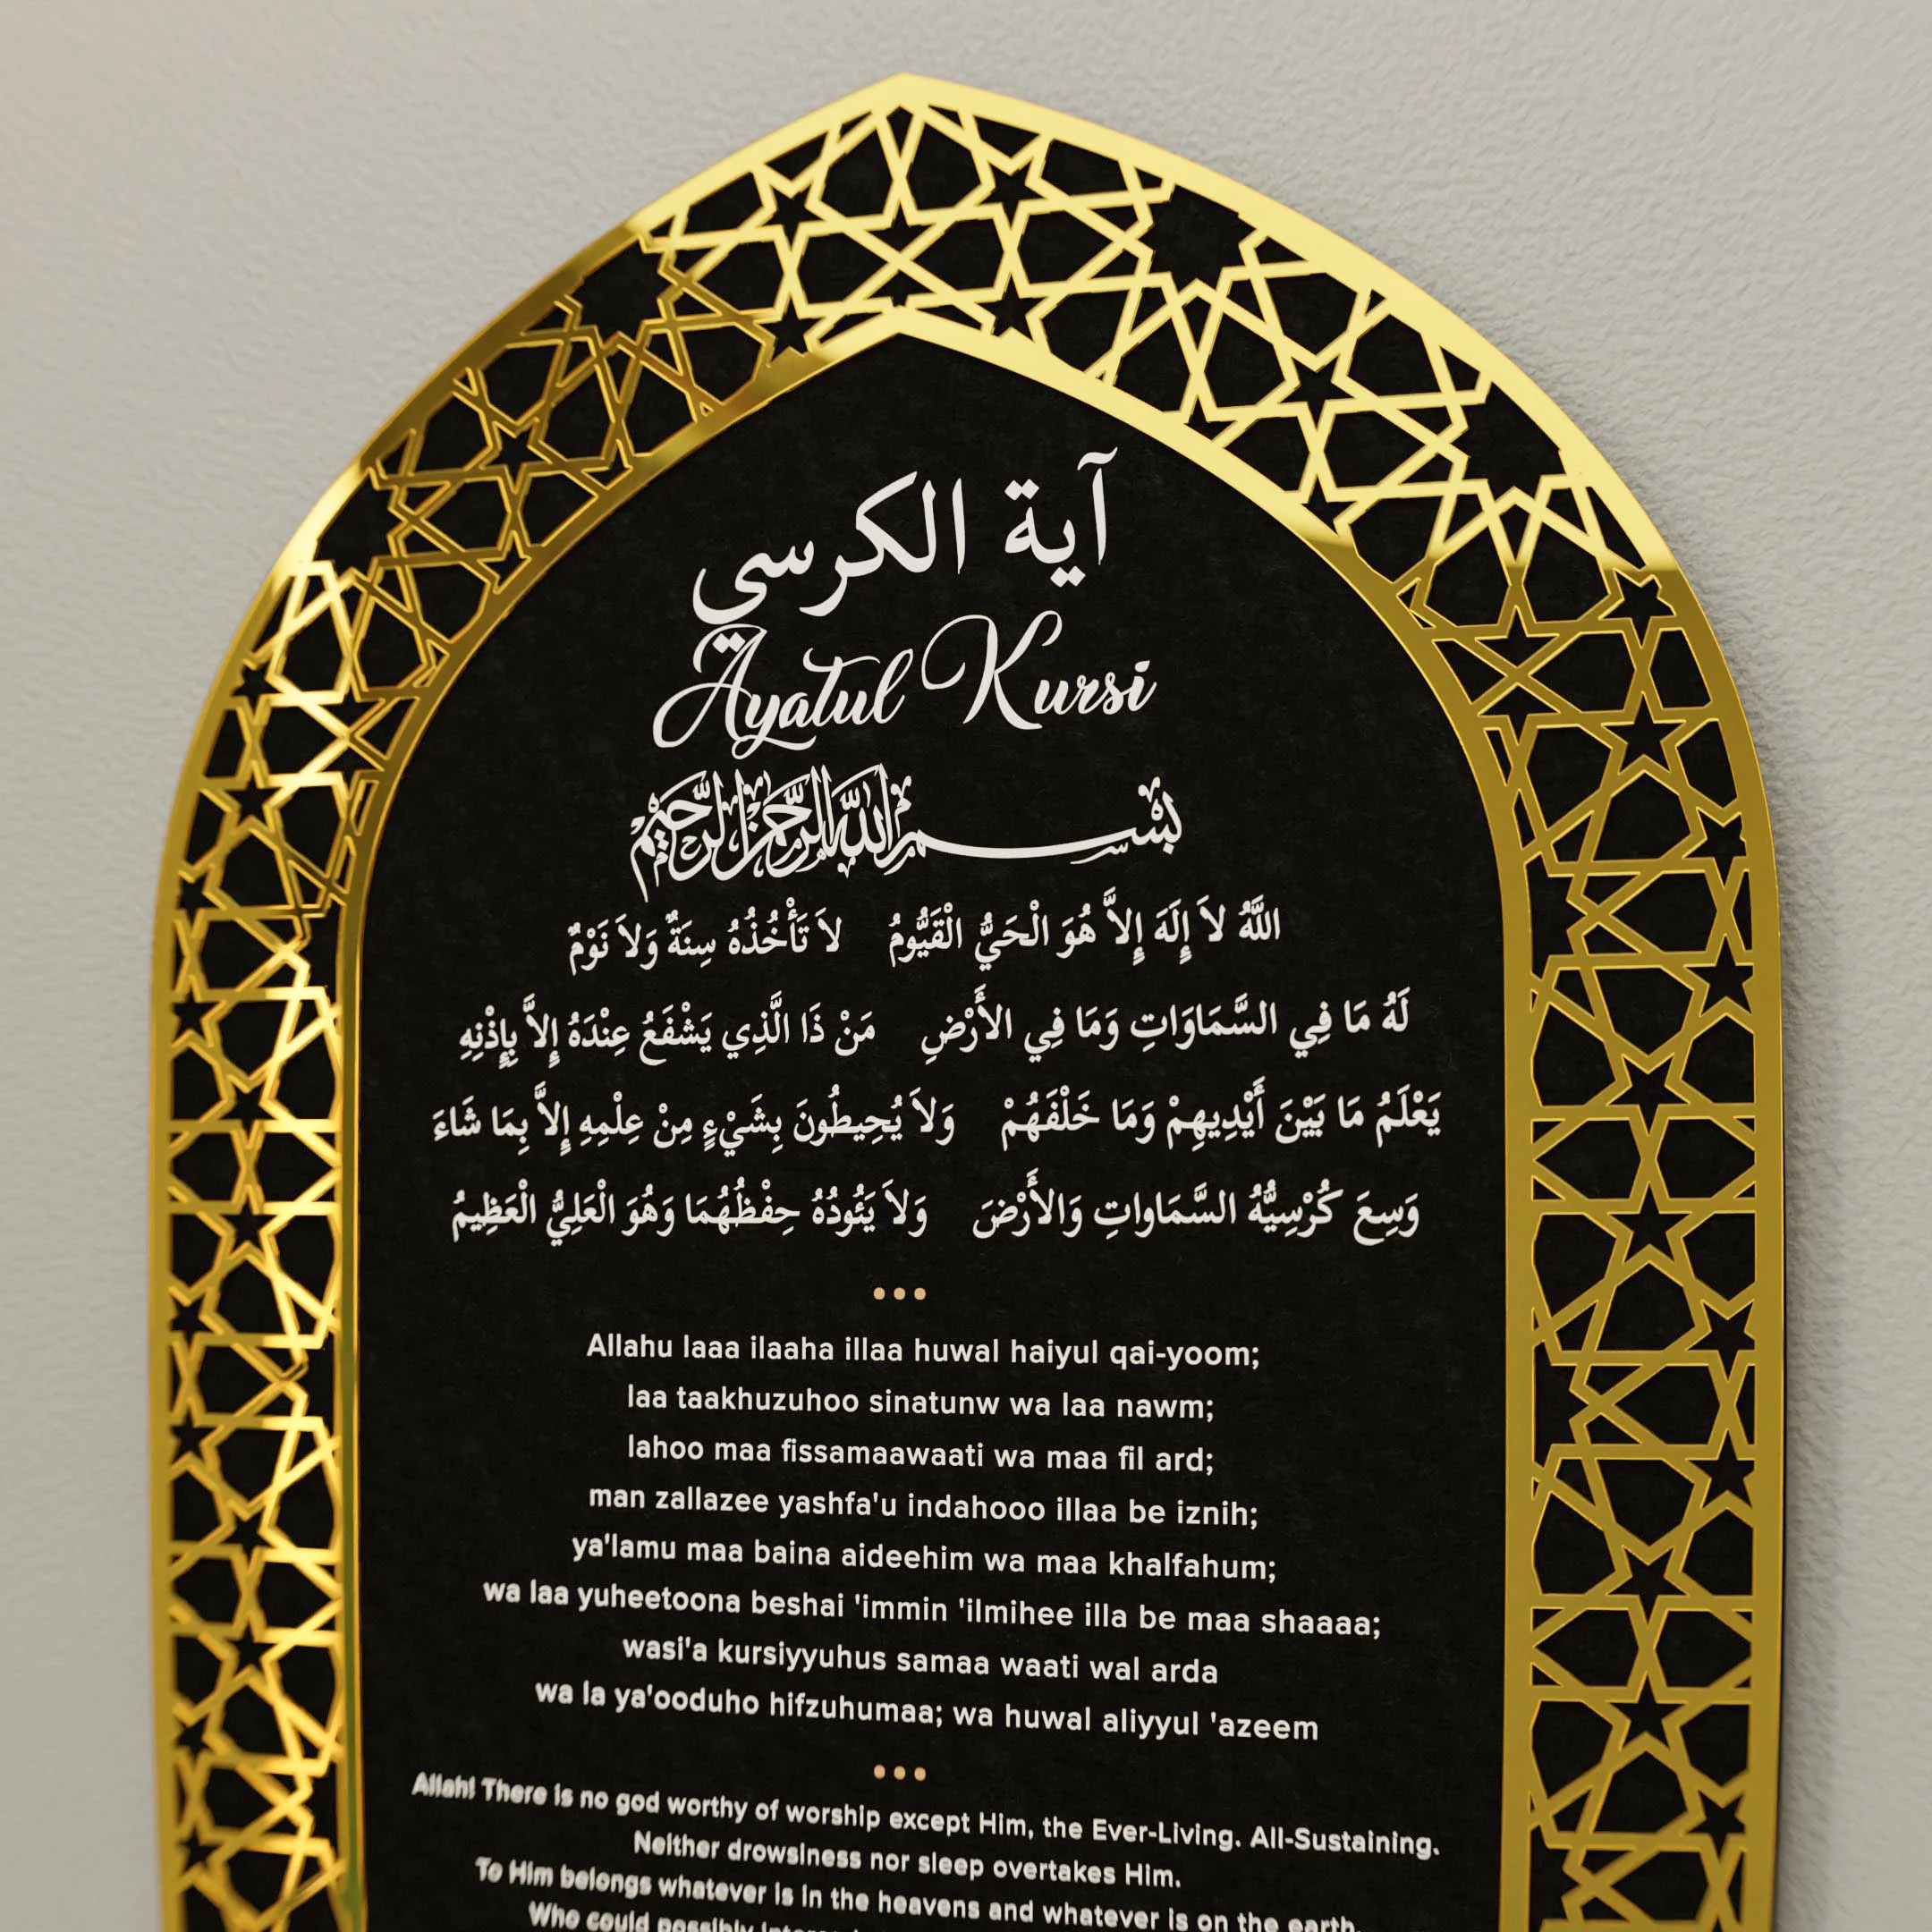 آية الكرسي
Ayatul Kursi
بسم الله الرحمن الرحيم
اللَّهُ لاَ إِلَهَ إِلاَّ هُوَ الْحَيُّ الْقَيُّومُ لاَ تَأْخُذُهُ سِنَةٌ وَلاَ نَوْمٌ
لَهُ مَا فِي السَّمَاوَاتِ وَمَا فِي الأَرْضِ مَنْ ذَا الَّذِي يَشْفَعُ عِنْدَهُ إِلاَّ بِإِذْنِهِ
يَعْلَمُ مَا بَيْنَ أَيْدِيهِمْ وَمَا خَلْفَهُمْ وَلاَ يُحِيطُونَ بِشَيْءٍ مِنْ عِلْمِهِ إِلاَّ بِمَا شَاءَ
وَسِعَ كُرْسِيُّهُ السَّمَاواتِ وَالأَرْضَ وَلاَ يَئُودُهُ حِفْظُهُمَا وَهُوَ الْعَلِيُّ الْعَظِيمُ
Allahu laaa ilaaha illaa huwal haiyul qai-yoom;
laa taakhuzuhoo sinatunw wa laa nawm;
lahoo maa fissamaawaati wa maa fil ard;
man zallazee yashfa'u indahooo illaa be iznih;
ya'lamu maa baina aideehim wa maa khalfahum;
wa laa yuheetoona beshai 'immin 'ilmihee illa be maa shaaaa;
wasi'a kursiyyuhus samaa waati wal arda
wa la ya'ooduho hifzuhumaa; wa huwal aliyyul 'azeem
Allah! There is no god worthy of worship except Him, the Ever-Living. All-Sustaining.
Neither drowsiness nor sleep overtakes Him.
To Him belongs whatever is in the heavens and whatever is on the earth.
Who could possibly